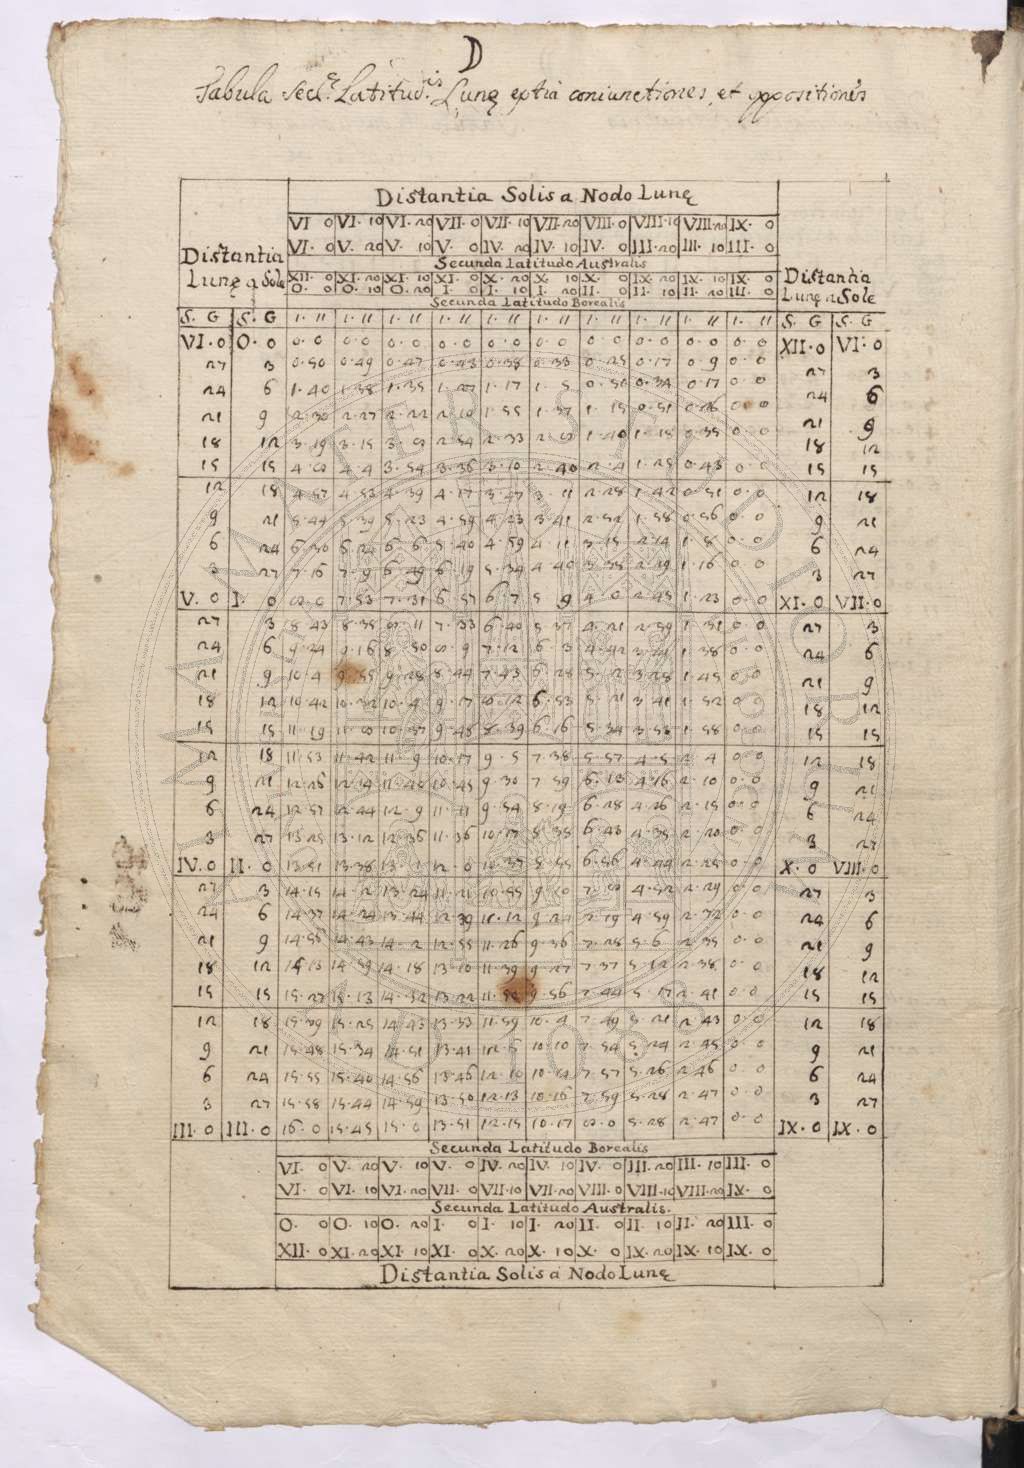 D
Tabula Secę Latitudis Lunę extra coniunctiones, et oppositiones
Distantia Solis a Nodo Lunę
VI 0 VI. 10 VI. 20 VII. 0 VII. 10 VII. 20 VIII. 0 VIII. 10 VIII. 20 IX. 0
VI. 0 V. 20 V. 10 V. 0 IV. 20 IV. 10 IV. 0 III. 20 III. 10 III. 0
Distantia Lunę a Sole
Secunda Latitudo Australis
XII. 0 XI. 20 XI. 10 XI. 0 X. 20 X. 10 X. 0 IX. 20 IX. 10 IX. 0
O. 0 O. 10 O. 20 I. 0 I. 10 I. 20 II. 0 II. 10 II. 20 III. 0
Distantia Lunę a Sole
Secunda Latitudo Borealis
S. G S. G I. II I. II I. II I. II I. II I. II I. II I. II I. II I. II S. G S. G
VI. 0 O. 0 0. 0 0. 0 0. 0 0. 0 0. 0 0. 0 0. 0 0. 0 0. 0 0. 0 XII. 0 VI. 0
27 3 0. 50 0. 49 0. 47 0. 43 0. 38 0. 33 0. 25 0. 17 0. 9 0. 0 27 3
24 6 1. 40 1. 38 1. 35 1. 27 1. 17 1. 5 0. 50 0. 34 0. 17 0. 0 24 6
21 9 2. 30 2. 27 2. 22 2. 10 1. 55 1. 37 1. 15 0. 51 0. 26 0. 0 21 9
18 12 3. 19 3. 15 3. 2. 54 2. 33 1. 40 0. 35 0. 0 18 12
15 15 4. 4. 4 3. 54 3. 36 3. 10 2. 40 2. 4 1. 25 0. 43 0. 0 15 15
12 18 4. 57 4. 53 4. 39 4. 17 3. 47 3. 11 2. 28 1. 42 0. 51 0. 0 12 18
9 21 5. 44 5. 39 5. 23 4. 59 4. 23 3. 41 2. 52 1. 58 0. 56 0. 0 9 21
6 24 6. 30 6. 24 6. 6 5. 40 4. 59 4. 11 3. 15 2. 14 1. 8 0. 0 6 24
3 27 7. 16 7. 9 6. 49 6. 19 5. 34 4. 40 3. 2. 29 1. 16 0. 0 3 27
V. 0 I. 0 7. 53 7. 31 6. 57 6. 7 5. 9 4. 0 2. 45 1. 23 0. 0 XI. 0 VII. 0
27 3 8. 43 8. 35 11 7. 33 6. 40 5. 37 4. 21 2. 59 1. 31 0. 0 27 3
24 6 9. 24 9. 16 8. 50 9 7. 12 6. 3 4. 42 1. 38 0. 0 24 6
21 9 10. 4 9. 55 9. 28 8. 44 7. 43 6. 28 5. 2 3. 28 1. 45 0. 0 21 9
18 12 10. 42 10. 32 10. 4 9. 17 6. 53 5. 21 3. 41 1. 52 0. 0 18 12
15 15 11. 19 10. 37 9. 48 8. 39 6. 16 5. 34 3. 53 1. 58 0. 0 15 15
12 18 11. 53 11. 42 11. 9 10. 17 9. 5 7. 38 5. 57 4. 5 2. 4 0. 0 12 18
9 21 12. 26 12. 14 11. 40 10. 45 9. 30 7. 59 6. 13 4. 16 2. 10 0. 0 9 21
6 24 12. 57 12. 44 12. 9 11. 11 9. 54 8. 19 6. 28 4. 26 2. 15 0. 0 6 24
3 27 13. 25 13. 12 12. 36 11. 36 10. 17 8. 38 6. 43 4. 35 2. 20 0. 0 3 27
IV. 0 II. 0 13. 51 13. 38 13. 1 12. 0 10. 37 8. 55 6. 56 4. 44 2. 25 0. 0 X. 0 VIII. 0
27 3 14. 15 14. 2 13. 24 11. 21 10. 55 9. 10 7. 4. 52 2. 29 0. 0 27 3
24 6 14. 37 14. 24 13. 44 12. 39 11. 12 9. 24 7. 19 4. 59 2. 32 0. 0 24 6
21 9 14. 56 14. 43 14. 2 12. 55 11. 26 9. 36 7. 28 5. 6 2. 35 0. 0 21 9
18 12 15. 13 14. 59 14. 18 13. 10 11. 39 9. 27 7. 37 5. 12 2. 38 0. 0 18 12
15 15 15. 27 15. 13 14. 32 13. 22 11. 50 9. 56 7. 44 5. 17 2. 41 0. 0 15 15
12 18 15. 39 15. 25 14. 43 13. 33 11. 59 10. 4 7. 49 5. 21 2. 43 0. 0 12 18
9 21 15. 48 15. 34 14. 51 13. 41 12. 5 10. 10 7. 54 5. 24 2. 45 0. 0 9 21
6 24 15. 55 15. 40 14. 56 13. 46 12. 10 10. 14 7. 57 5. 26 2. 46 0. 0 6 24
3 27 15. 58 15. 44 14. 59 13. 50 12. 13 10. 16 7. 59 5. 28 2. 47 0. 0 3 27
III. 0 III. 0 16. 0 15. 45 15. 0 13. 51 12. 15 10. 17 5. 28 2. 47 0. 0 IX. 0 IX. 0
Secunda Latitudo Borealis
VI. 0 V. 20 V. 10 V. 0 IV. 20 IV. 10 IV. 0 III. 20 III. 10 III. 0
VI. 0 VI. 10 VI. 20 VII. 0 VII. 10 VII. 20 VIII. 0 VIII. 10 VIII. 20 IX. 0
Secunda Latitudo Australis.
O. 0 O. 10 O. 20 I. 0 I. 10 I. 20 II. 0 II. 10 II. 20 III. 0
XII. 0 XI. 20 XI. 10 XI. 0 X. 20 X. 10 X. 0 IX. 20 IX. 10 IX. 0
Distantia Solis a Nodo Lunę